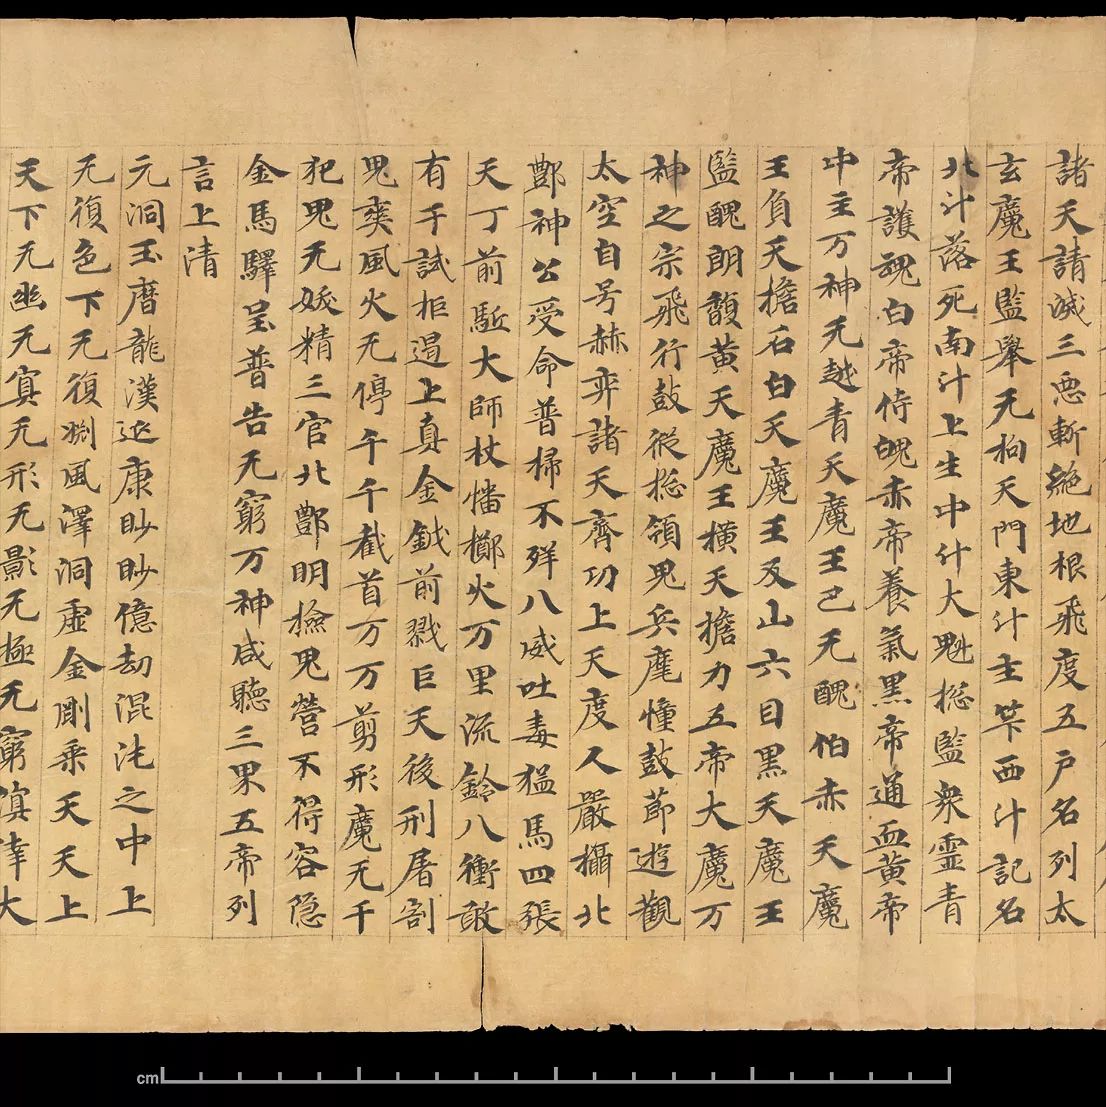 諸天請滅三惡斬絕地根飛度五戶名列太
玄魔王監舉无拘天門東斗主笇西斗記名
北斗落死南斗上生中斗大魁揔監衆靈青
帝護魂白帝侍魄赤帝養氣黑帝通血黃帝
中主万神无越青天魔王巴无醜伯赤天魔
王負天檐石白天魔王反山六目黑天魔王
監醜朗馥黃天魔王橫天檐力五帝大魔万
神之宗飛行鼓從揔領鬼兵麾幢鼓節遊觀
太空自号赫弈諸天齊功上天度人嚴攝北
酆神公受命普掃不祥八威吐毒猛馬四張
天丁前駈大師杖幡擲火万里流鈴八衝敢
有干試拒遏上真金鉞前戮巨天後刑屠割
鬼爽風火无停千千截首万万剪形魔无干
犯鬼无妖精三官北酆明檢鬼營不得容隱
金馬驛呈普告无窮万神咸聽三界五帝列
言上清
元洞玉曆龍漢延康眇眇億劫混沌之中上
无復色下无復渕風澤洞虛金剛乘天天上
天下无幽无冥无形无影无極无窮溟涬大